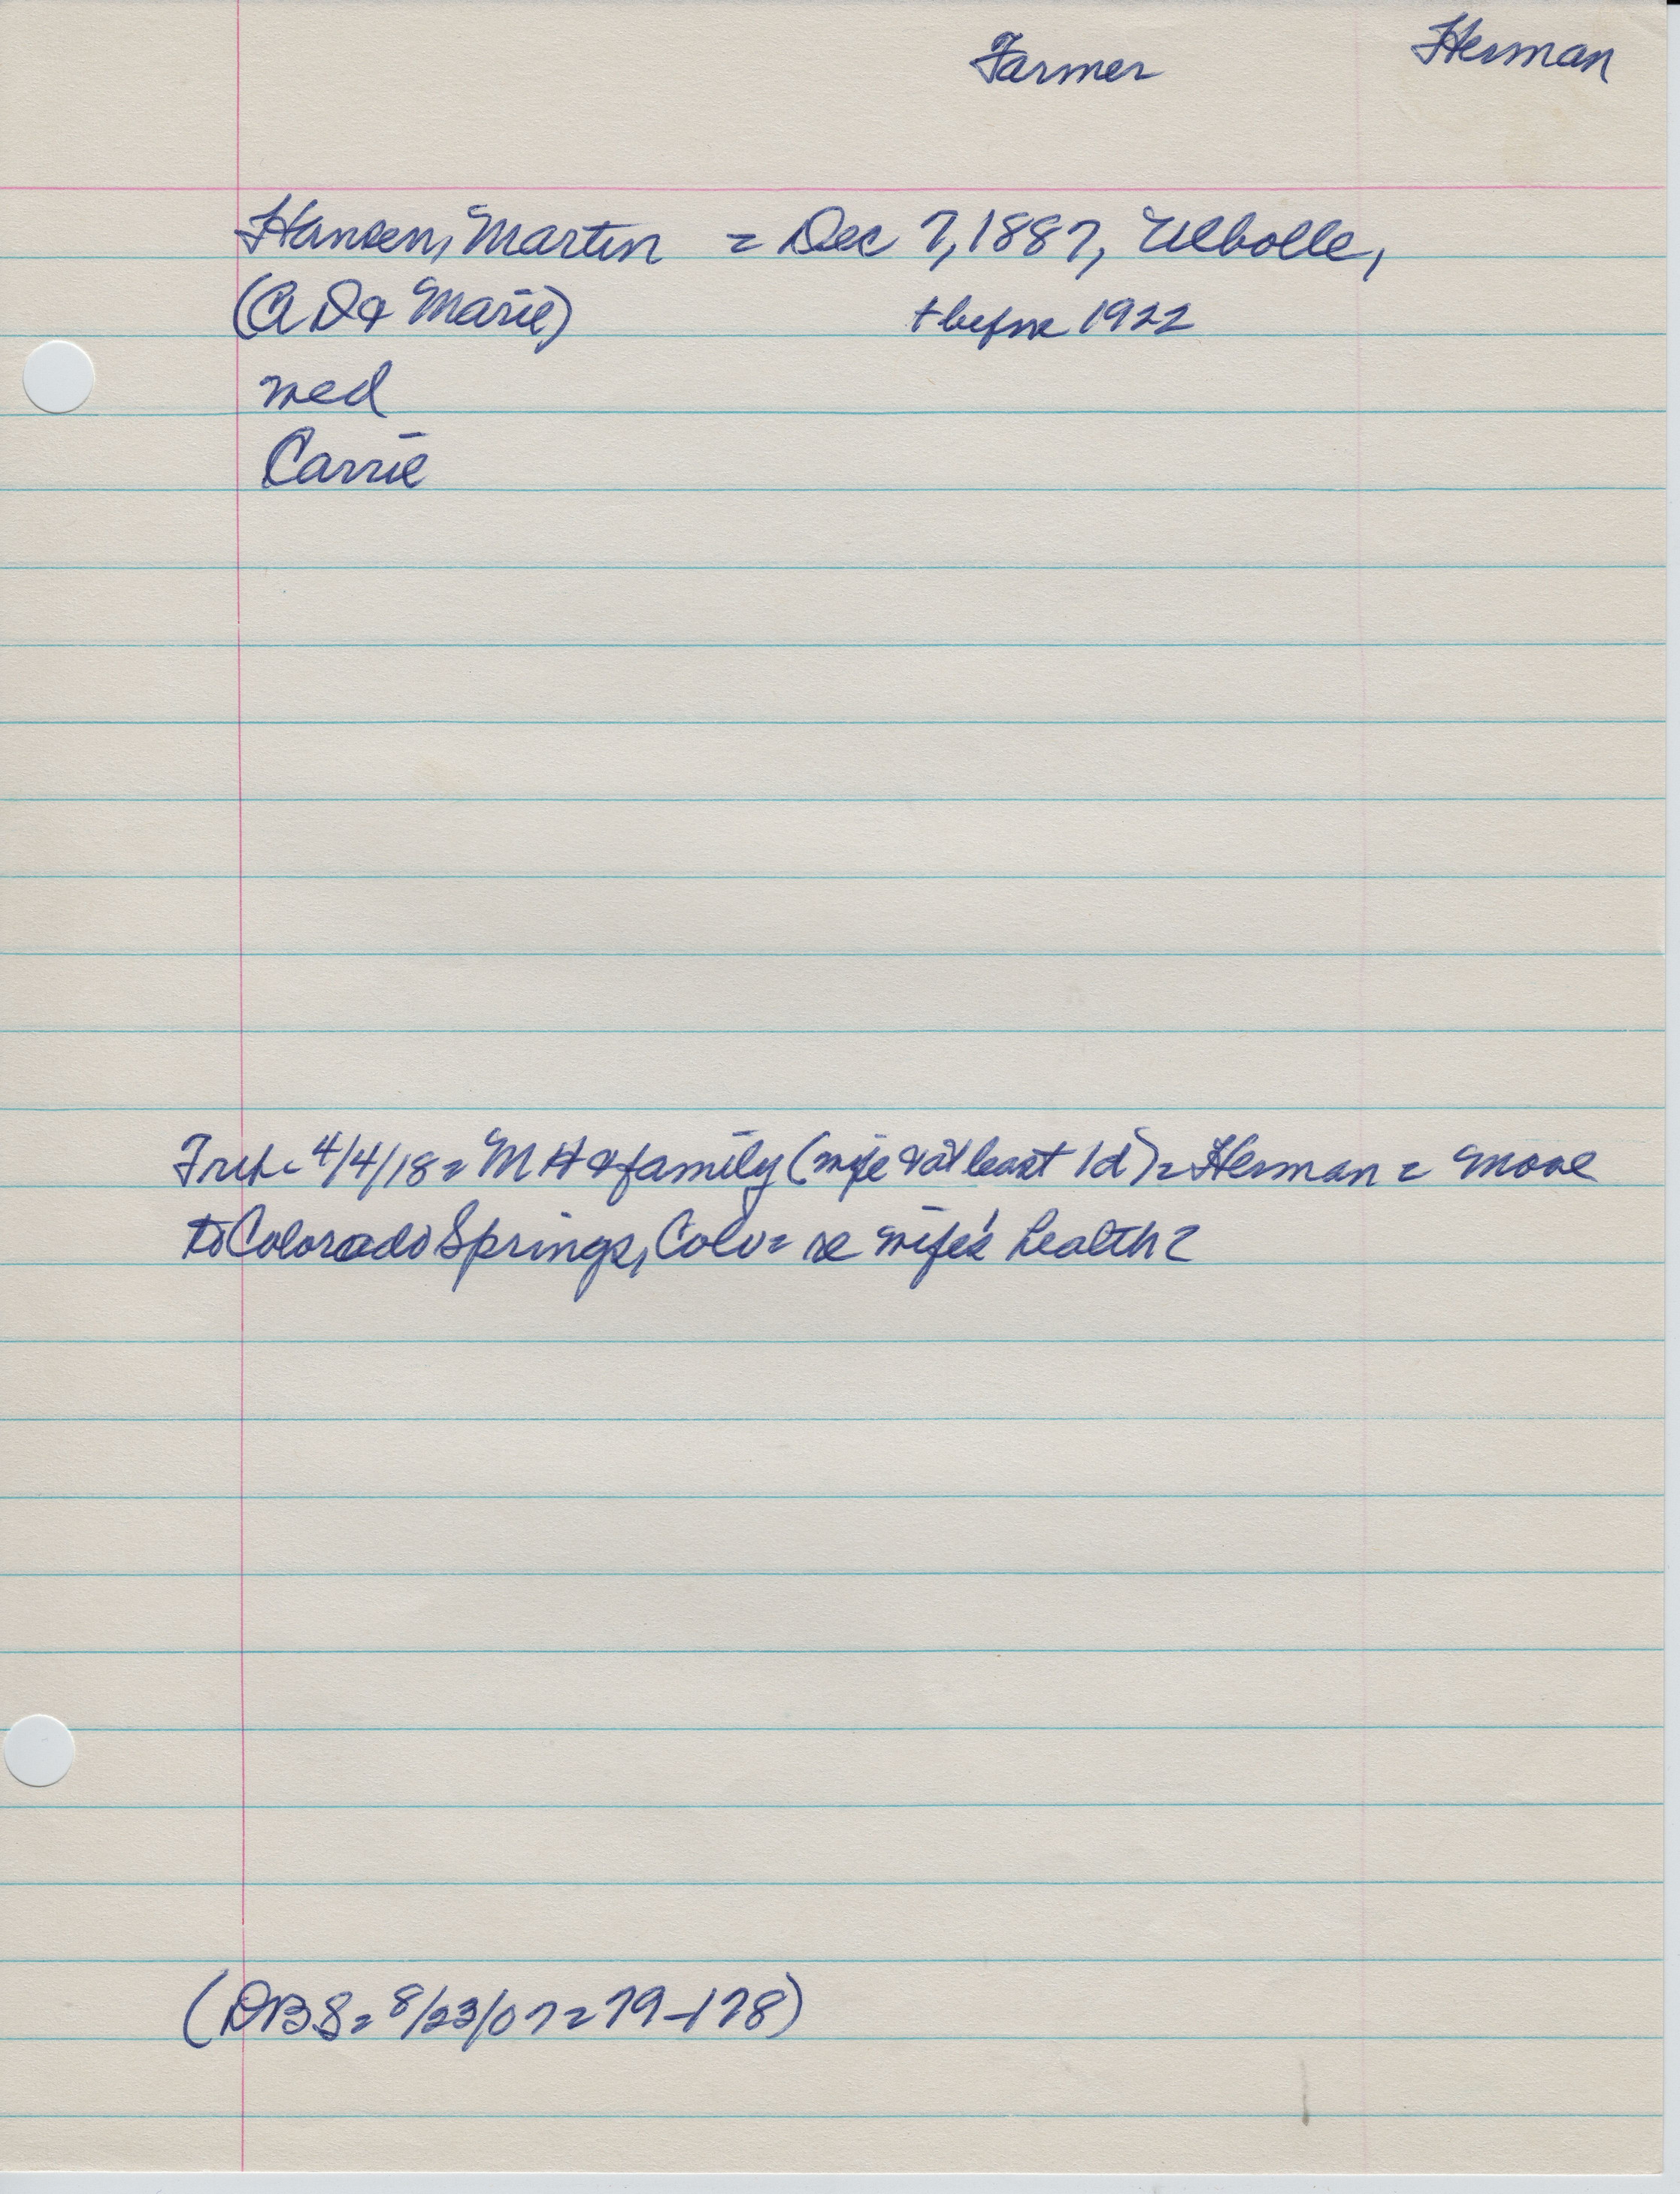 Farmer Herman
Hansen, Martin = Dec 7, 1887, Ulbolle,
(A D & Marie) + before 1922
med
Carrie
4/4/18 = M H & family (wife & at least 1 d) = Herman = move
to Colorado Springs, Colo = re wife's health =
(DBS = 8/23/07 = 79-178)